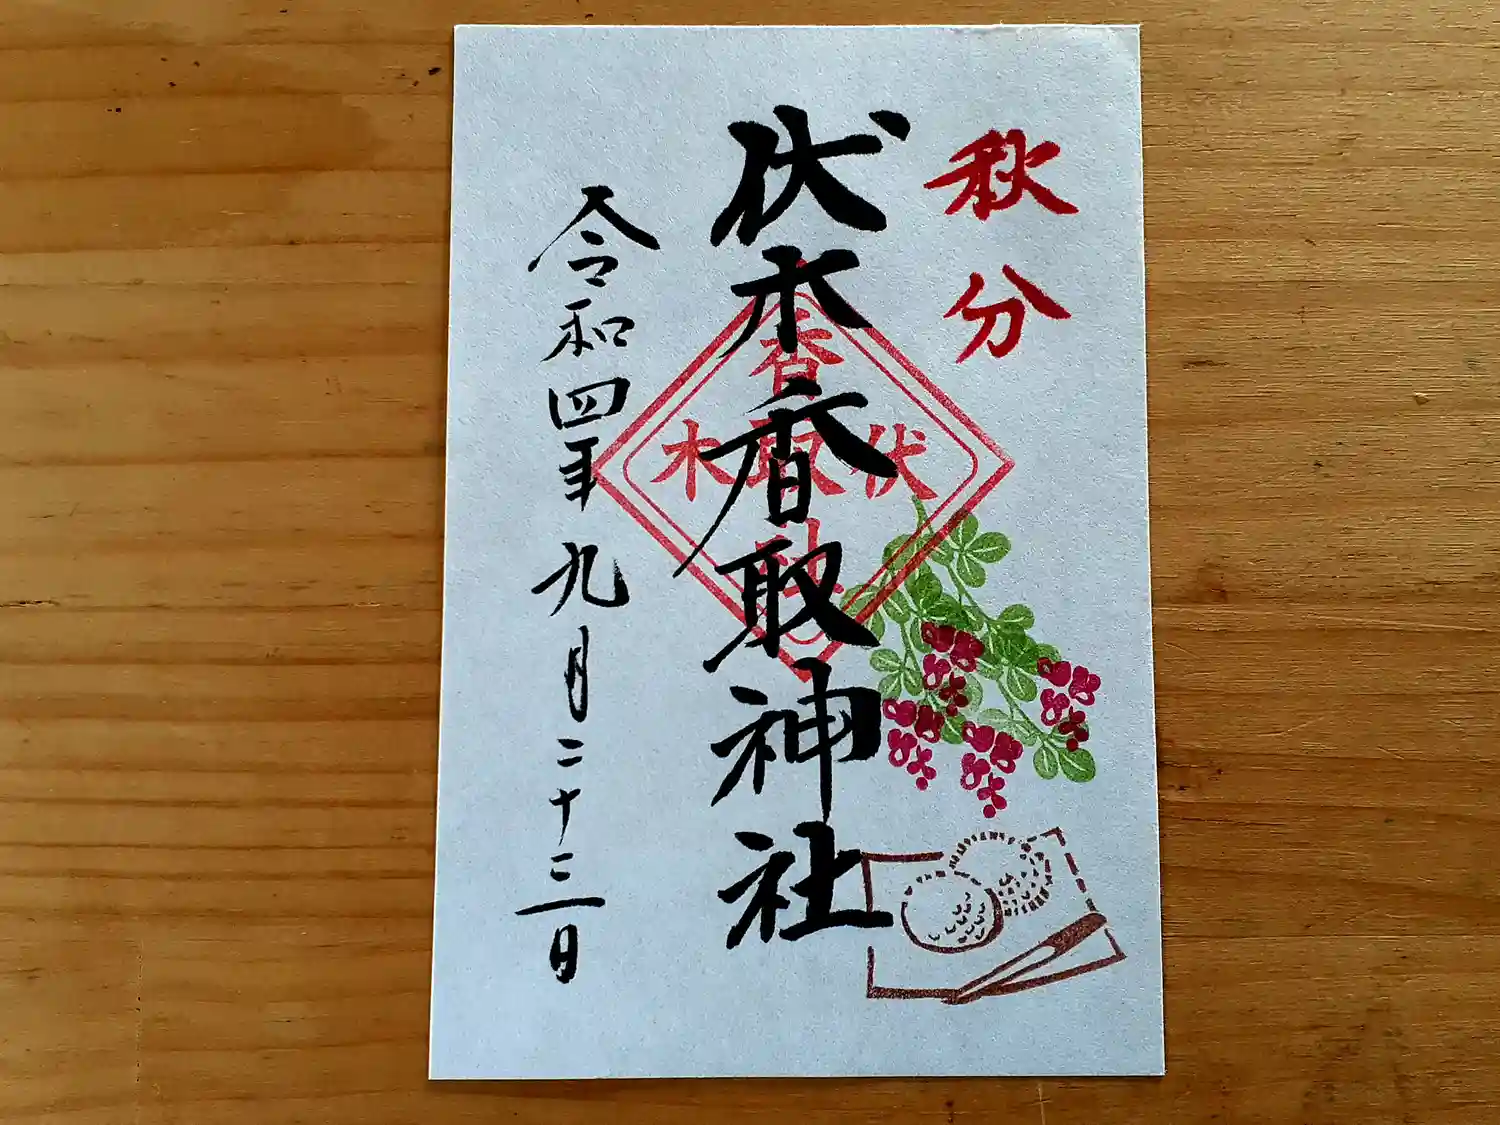 秋分
伏木香取神社
香
伏取木
令和四年九月二十三日